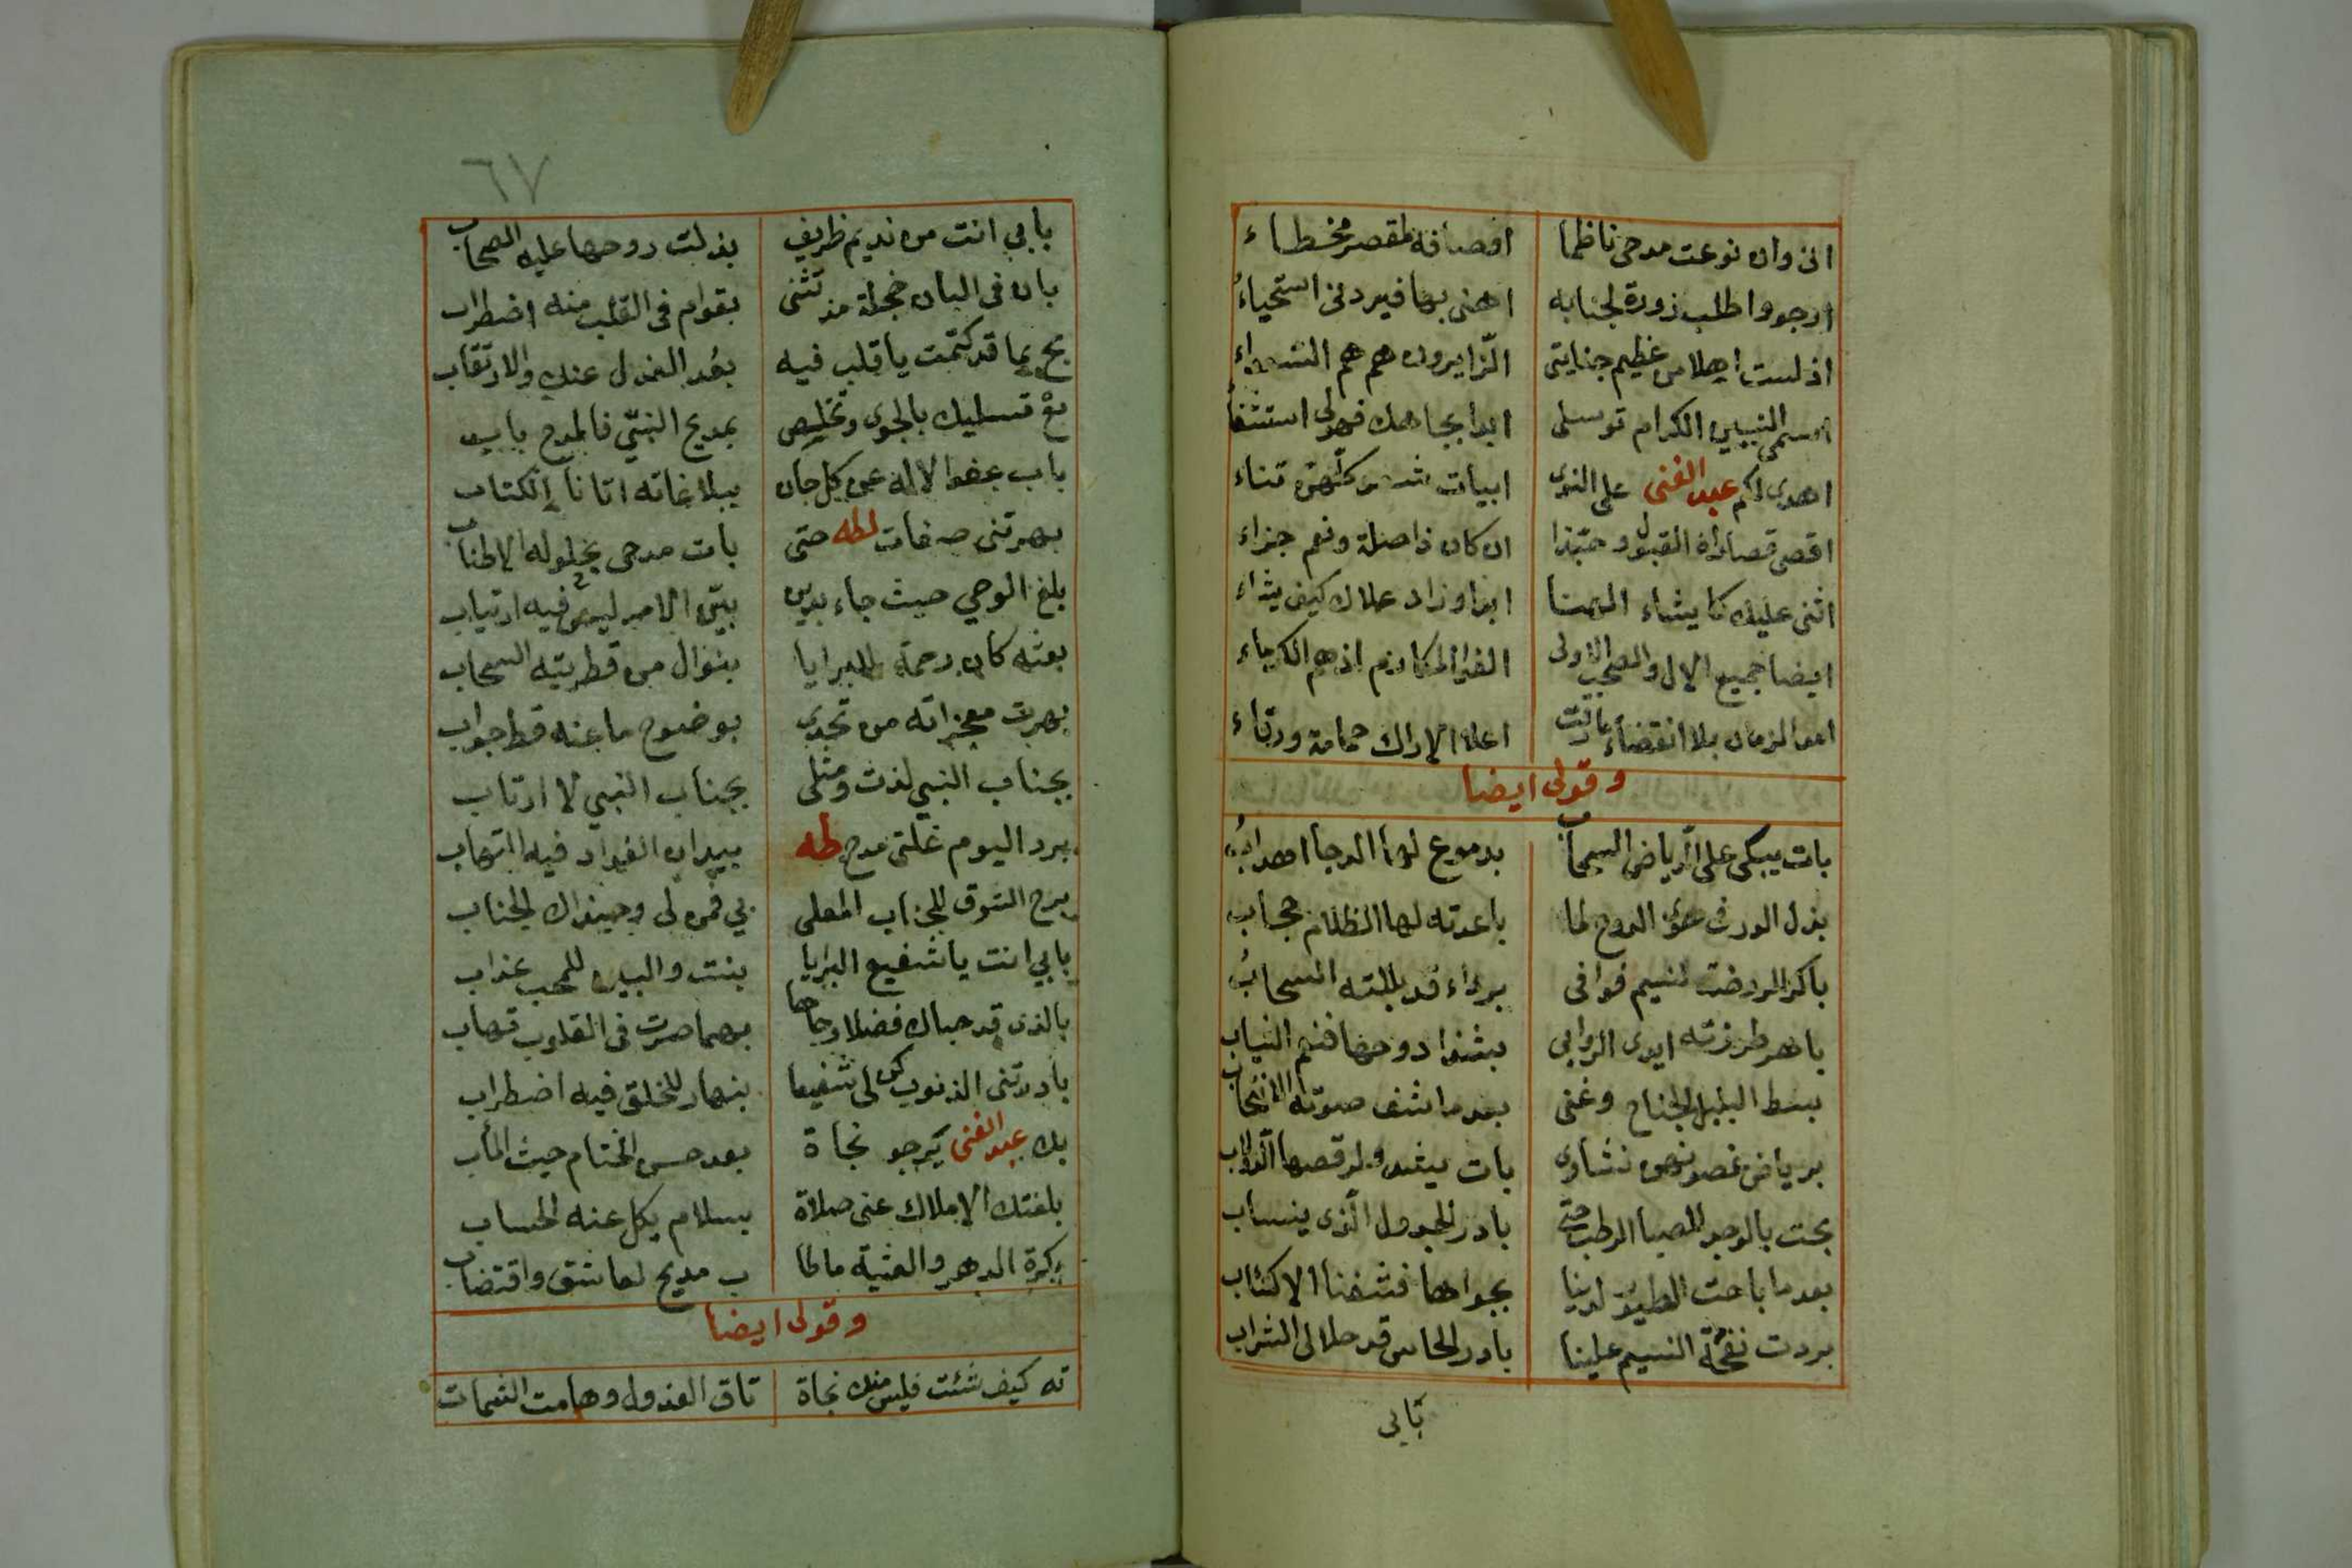 انى وان نوعت مدحى ناظما اوصافه لمقصر مخطاء
ارجو واطلب زورة لجنابه اهنى بها فيردنى استحياء
اذ لست اهلا من عظيم جنايتى الزايرون هم هم
النبيين الكرام توسلى ابدا بجاهك فهو لى
اهدى لكم عبد الغنى على النوى ابيات
اقصى القبول وحبذا ان كان ذا صلة ونعم جزاء
اثنى عليك كما يشاء ابدا وزاد علاك كيف يشاء
ايضا جميع الال والصحب الاولى المكارم اذ هم الكرماء
امد الزمان بلا انقضاء اعلا الاراك حمامة ورقاء
وقولى ايضا
بات يبكى على الرياض السحاب بدموع لها الدجا اهداب
بذل الورق لما باعدته لها الظلام حجاب
باكر الروضة نسيم فوافى برداء قد بللته السحاب
طرزته ايدى الروابى دوحها فنعم الثياب
بسط البلبل الجناح وغنى بعدما شف صوته الانتحاب
برياض غصونهن نشاوى بات
بحت بالوجد للصبا الرطب حتى بادر الجدول الذى ينساب
بعدما باحت الطيور لدينا بجواها فشفنا الاكتئاب
بردت نفحة النسيم علينا بادر الحاس قد حلا لى الشراب
بابى
٦٧
بابى انت من نديم ظريف بذلت روحها عليه الصحاب
بان فى البان خجلة مذ تثنى بقوام فى القلب منه اضطراب
بح بما قد كتمت يا قلب فيه بعد العذل عنك والارتقاب
بع تسليك بالجوى وتخلص بمديح النبى فالمدح باب
باب عفو الاله عن كل جان ببلاغاته اتانا الكتاب
بهرتنى صفات لطه حتى بات مدحى يحلو له الاطناب
بلغ الوحى حيث جاء بدين بين الامر ليس فيه ارتياب
بعثه كان رحمة للبرايا بنوال من قطريته السحاب
بهرت معجزاته من تحدى بوضوح ما عنه قط جواب
بجناب النبى لذت ومثلى بجناب النبى لا ارتاب
برد اليوم غلتى مدح طه بيد ان الفؤاد فيه التهاب
برح الشوق للجناب المعلى بى فمن لى وحبذاك الجناب
بابى انت يا شفيع البرايا بنت والبين للمحب عذاب
بالذى قد حباك فضلا وجاها بهما صرت فى القلوب تهاب
بادرتنى الذنوب كن لى شفيعا بنهار للخلق فيه اضطراب
بك عبد الغنى يرجو نجاة بعد حسن الختام حيث المأب
بلغتك الاملاك عنى صلاة بسلام يكل عنه الحساب
بكرة الدهر والعشية ما طا ب مديح لعاشق واقتضاب
وقولى ايضا
ته كيف شئت فليس منك نجاة تاق العذول وهامت